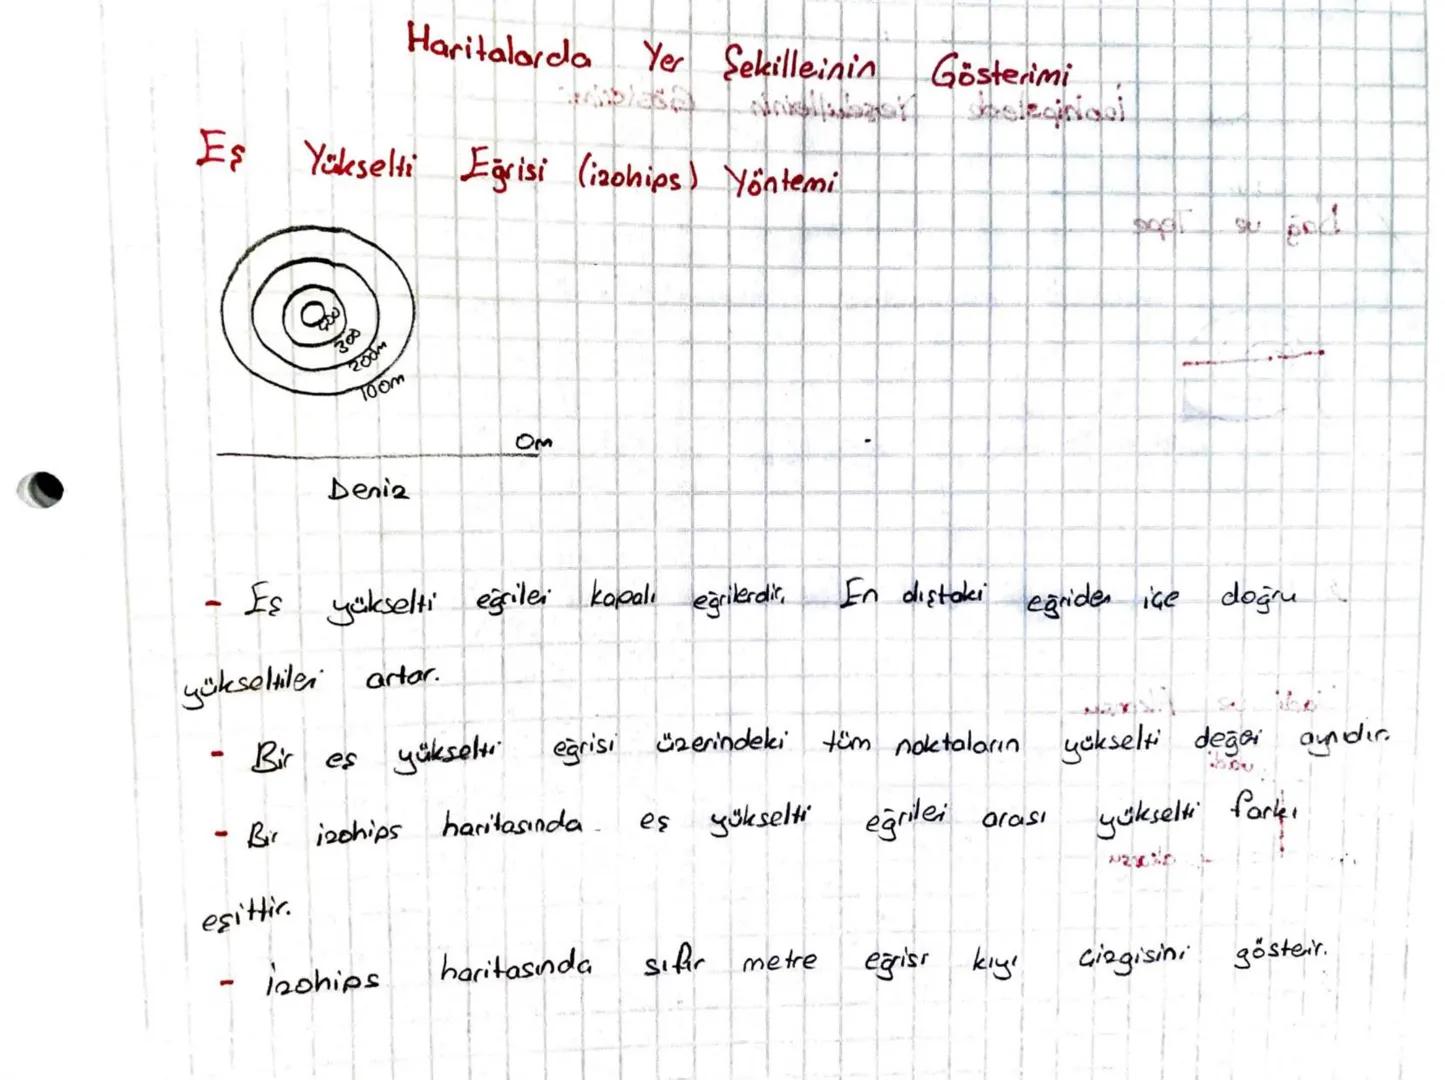 Haritalarda Yer Şekilleinin Gösterimi
Eş Yükselti Eğrisi (izohips) Yöntemi
400
300
200m
100m
0m
Deniz
- Eş yükselti eğrilei kapalı eğrilerdir. En dıştaki eğriden içe doğru
yükseltilei artar.
- Bir eş yükselti eğrisi üzerindeki tüm noktaların yükselti değei aynıdır.
- Bir izohips haritasında eş yükselti eğrilei arası yükselti farkı
eşittir.
- İzohips haritasında sıfır metre eğrisi kıyı çizgisini gösteir.